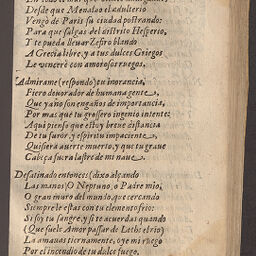 Desde que Menalao el adulterio
Vengò de Paris su ciudad postrando:
Para que salgas del distrito Hesperio,
Y te pueda lleuar Zefiro blando
A Grecia libre, y a tus dulces Griegos
Le vencerè con amorosos ruegos.
Admirame (respondo) tu inorancia,
Fiero deuorador de humana gente,
Que ya no son engaños de importancia,
Por mas que tu grossero ingenio intente:
Aqui pienso que estoy breue distancia
De tu furor, y espiritu impaciente,
Quisiera auerte muerto, y que tu graue
Cabeça fuera lastre de mi naue.
Desatinado entonces (dixo) alçando
Las manos, O Neptuno, o Padre mio,
O gran muro del mundo, que cercando
Siempre le estas con tu elemento frio:
Si soy tu sangre, y si te acuerdas quando
(Que suele Amor passar de Lethe el rio)
La amauas tiernamente, oye mi ruego
Por el incendio de tu dulce fuego.